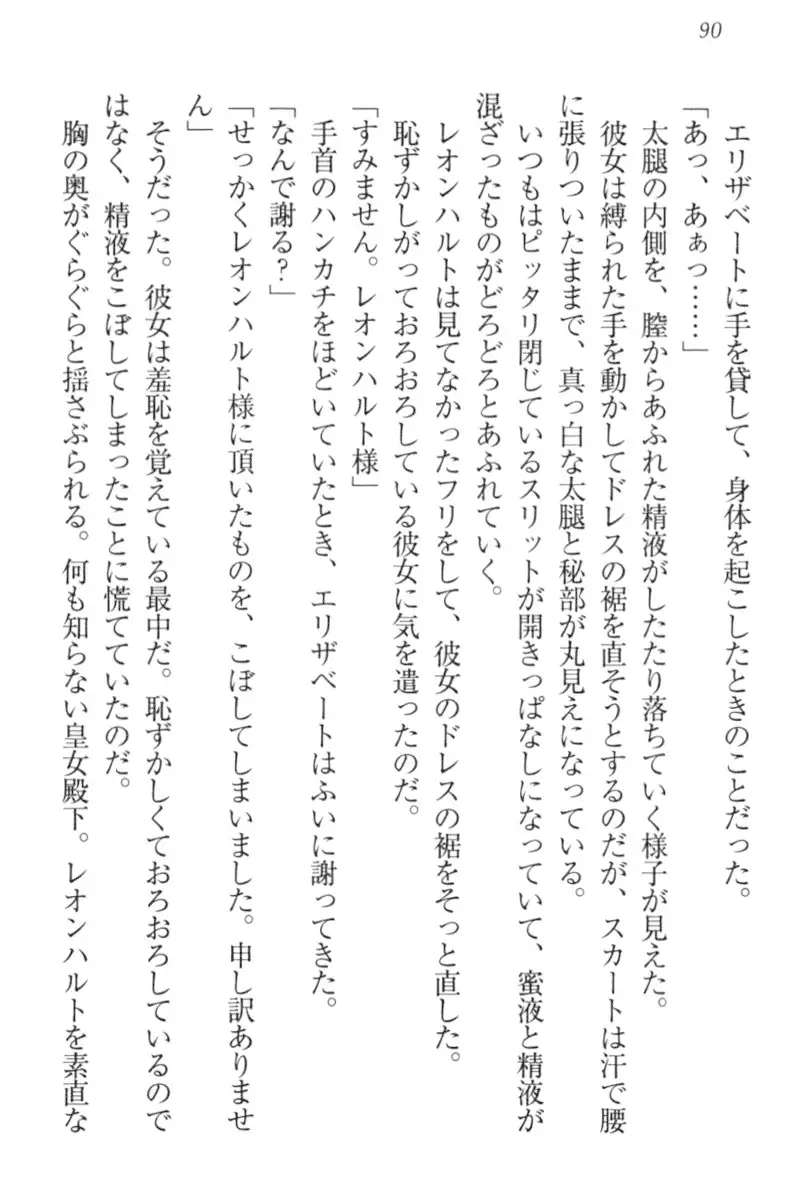 90
エリザベートに手を貸して、身体を起こしたときのことだった。
「あっ、あぁっ……」
太腿の内側を、膣からあふれた精液がしたたり落ちていく様子が見えた。
彼女は縛られた手を動かしてドレスの裾を直そうとするのだが、スカートは汗で腰
に張りついたままで、真っ白な太腿と秘部が丸見えになっている。
いつもはピッタリ閉じているスリットが開きっぱなしになっていて、蜜液と精液が
混ざったものがどろどろとあふれていく。
レオンハルトは見てなかったフリをして、彼女のドレスの裾をそっと直した。
恥ずかしがっておろおろしている彼女に気を遣ったのだ。
「すみません。レオンハルト様」
手首のハンカチをほどいていたとき、エリザベートはふいに謝ってきた。
「なんで謝る?」
「せっかくレオンハルト様に頂いたものを、こぼしてしまいました。申し訳ありませ
ん」
そうだった。彼女は羞恥を覚えている最中だ。恥ずかしくておろおろしているので
はなく、精液をこぼしてしまったことに慌てていたのだ。
胸の奥がぐらぐらと揺さぶられる。何も知らない皇女殿下。レオンハルトを素直な